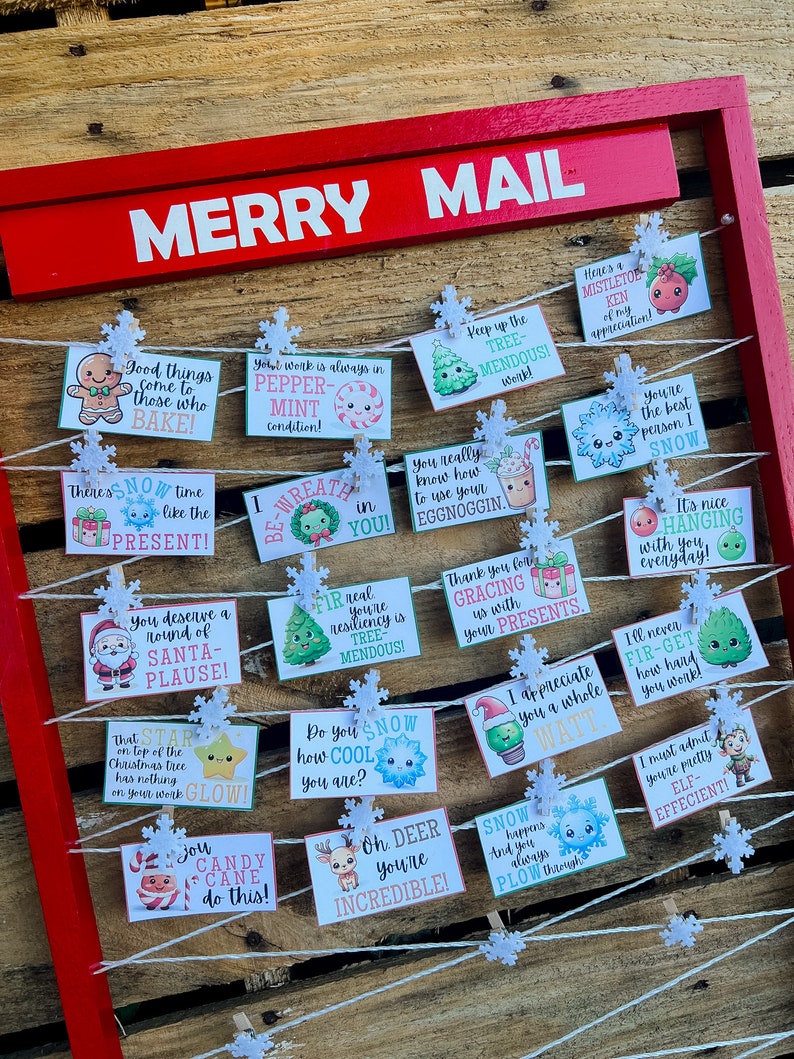 MERRY MAIL
Good things
come to
those who
BAKE!
Your work is always in
PEPPER-
MINT
condition!
Keep up the
TREE-
MENDOUS!
work!
Here's a
MISTLETOE
KEN
of my
appreciation!
There's SNOW time
like the
PRESENT!
I
BE-WREATH
in
YOU!
You really
know how
to use your
EGGNOGGIN.
You're
the best
person I
SNOW.
You deserve a
round of
SANTA-
PLAUSE!
FIR real
you're
resiliency is
TREE-
MENDOUS!
Thank you for
GRACING
us with
your PRESENTS.
It's nice
HANGING
with you
everyday!
That STAR
on top of the
Christmas tree
has nothing
on your work GLOW!
Do you SNOW
how COOL
you are?
I appreciate
you a whole
WATT.
I'll never
FIR-GET
how hard
you work!
You
CANDY
CANE
do this!
Oh, DEER
you're
INCREDIBLE!
SNOW
happens
And you
always
PLOW through
I must admit
you're pretty
ELF-
EFFECIENT!